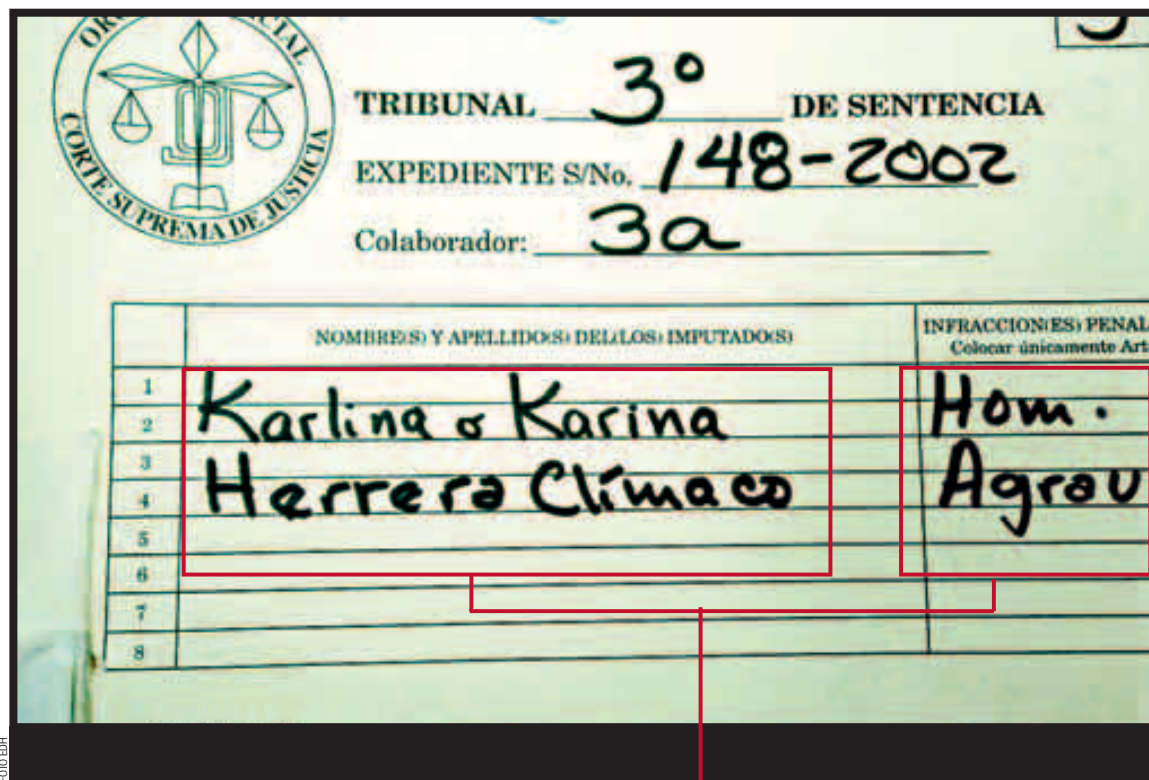 CORTE SUPREMA DE JUSTICIA
TRIBUNAL 3º DE SENTENCIA
EXPEDIENTE S/No. 148-2002
Colaborador: 3a
NOMBRE(S) Y APELLIDO(S) DEL(LOS) IMPUTADO(S)
INFRACCION(ES) PENAL
Colocar únicamente Art
1
Karlina o Karina
Hom.
2
3
Herrera Clímaco
Agrav
4
5
6
7
8